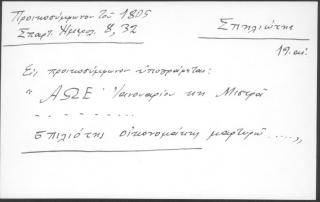 Προικοσύμφωνον τοῦ 1805
Σπαρτ. Ἡμερολ. 8, 32
Σπηλιώτης
19. αἰ.
Εἰς προικοσύμφωνον ὑπογράφεται:
" ΑΩΕ Ἰανουαρίου κη Μιστρᾶ
- - - - - - - -
Σπιλιότης οἰκονομάκης μαρτυρῶ ....,,